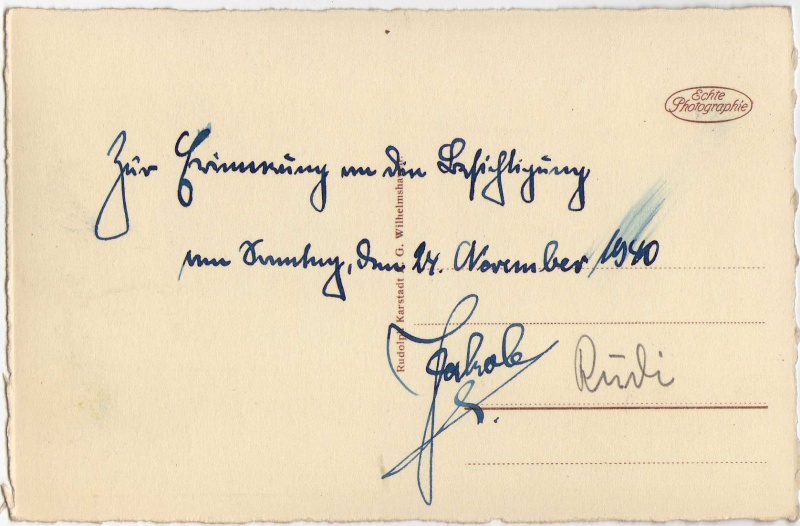 Echte
Photographie
Zur Erinnerung an die Besichtigung
am Sonntag, den 24. November 1940
Rudolph Karstadt A. G. Wilhelmshaven
Jakob
Rudi